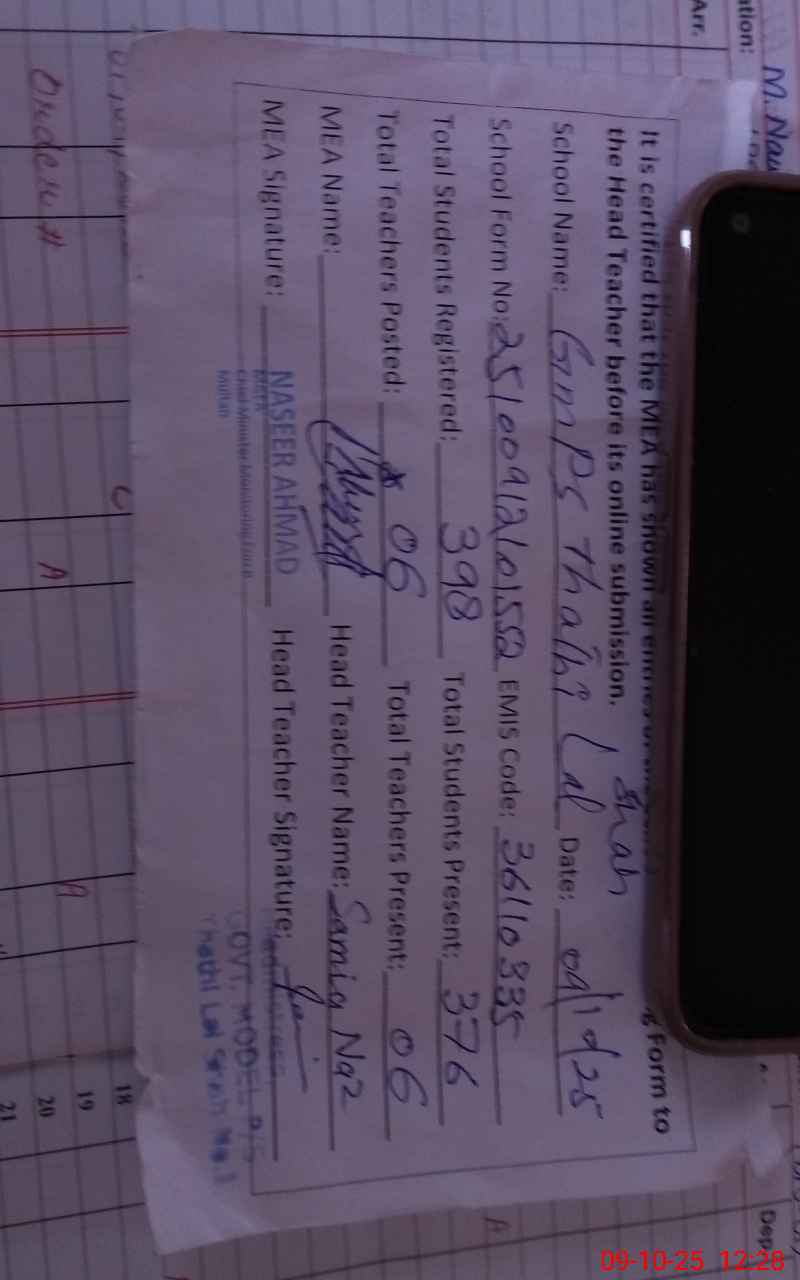 It is certified that the MEA has shown all entries of
g Form to
the Head Teacher before its online submission.
Shah
School Name: GMPS Thathi Lal Date: 09/10/25
School Form No: EMIS Code: 36110335
Total Students Registered: 398 Total Students Present: 376
Total Teachers Posted: 06 Total Teachers Present: 06
MEA Name: Head Teacher Name: Samia Naz
MEA Signature: Head Teacher Signature:
NASEER AHMAD
MEA
Chief Minister Monitoring Force
Multan
Headmistress
GOVT. MODEL P/S
Thathi Lal Shah No.1
ation:
M. Nav
Arr.
Order #
A
A
A
18
19
20
21
Dep
09-10-25 12:28